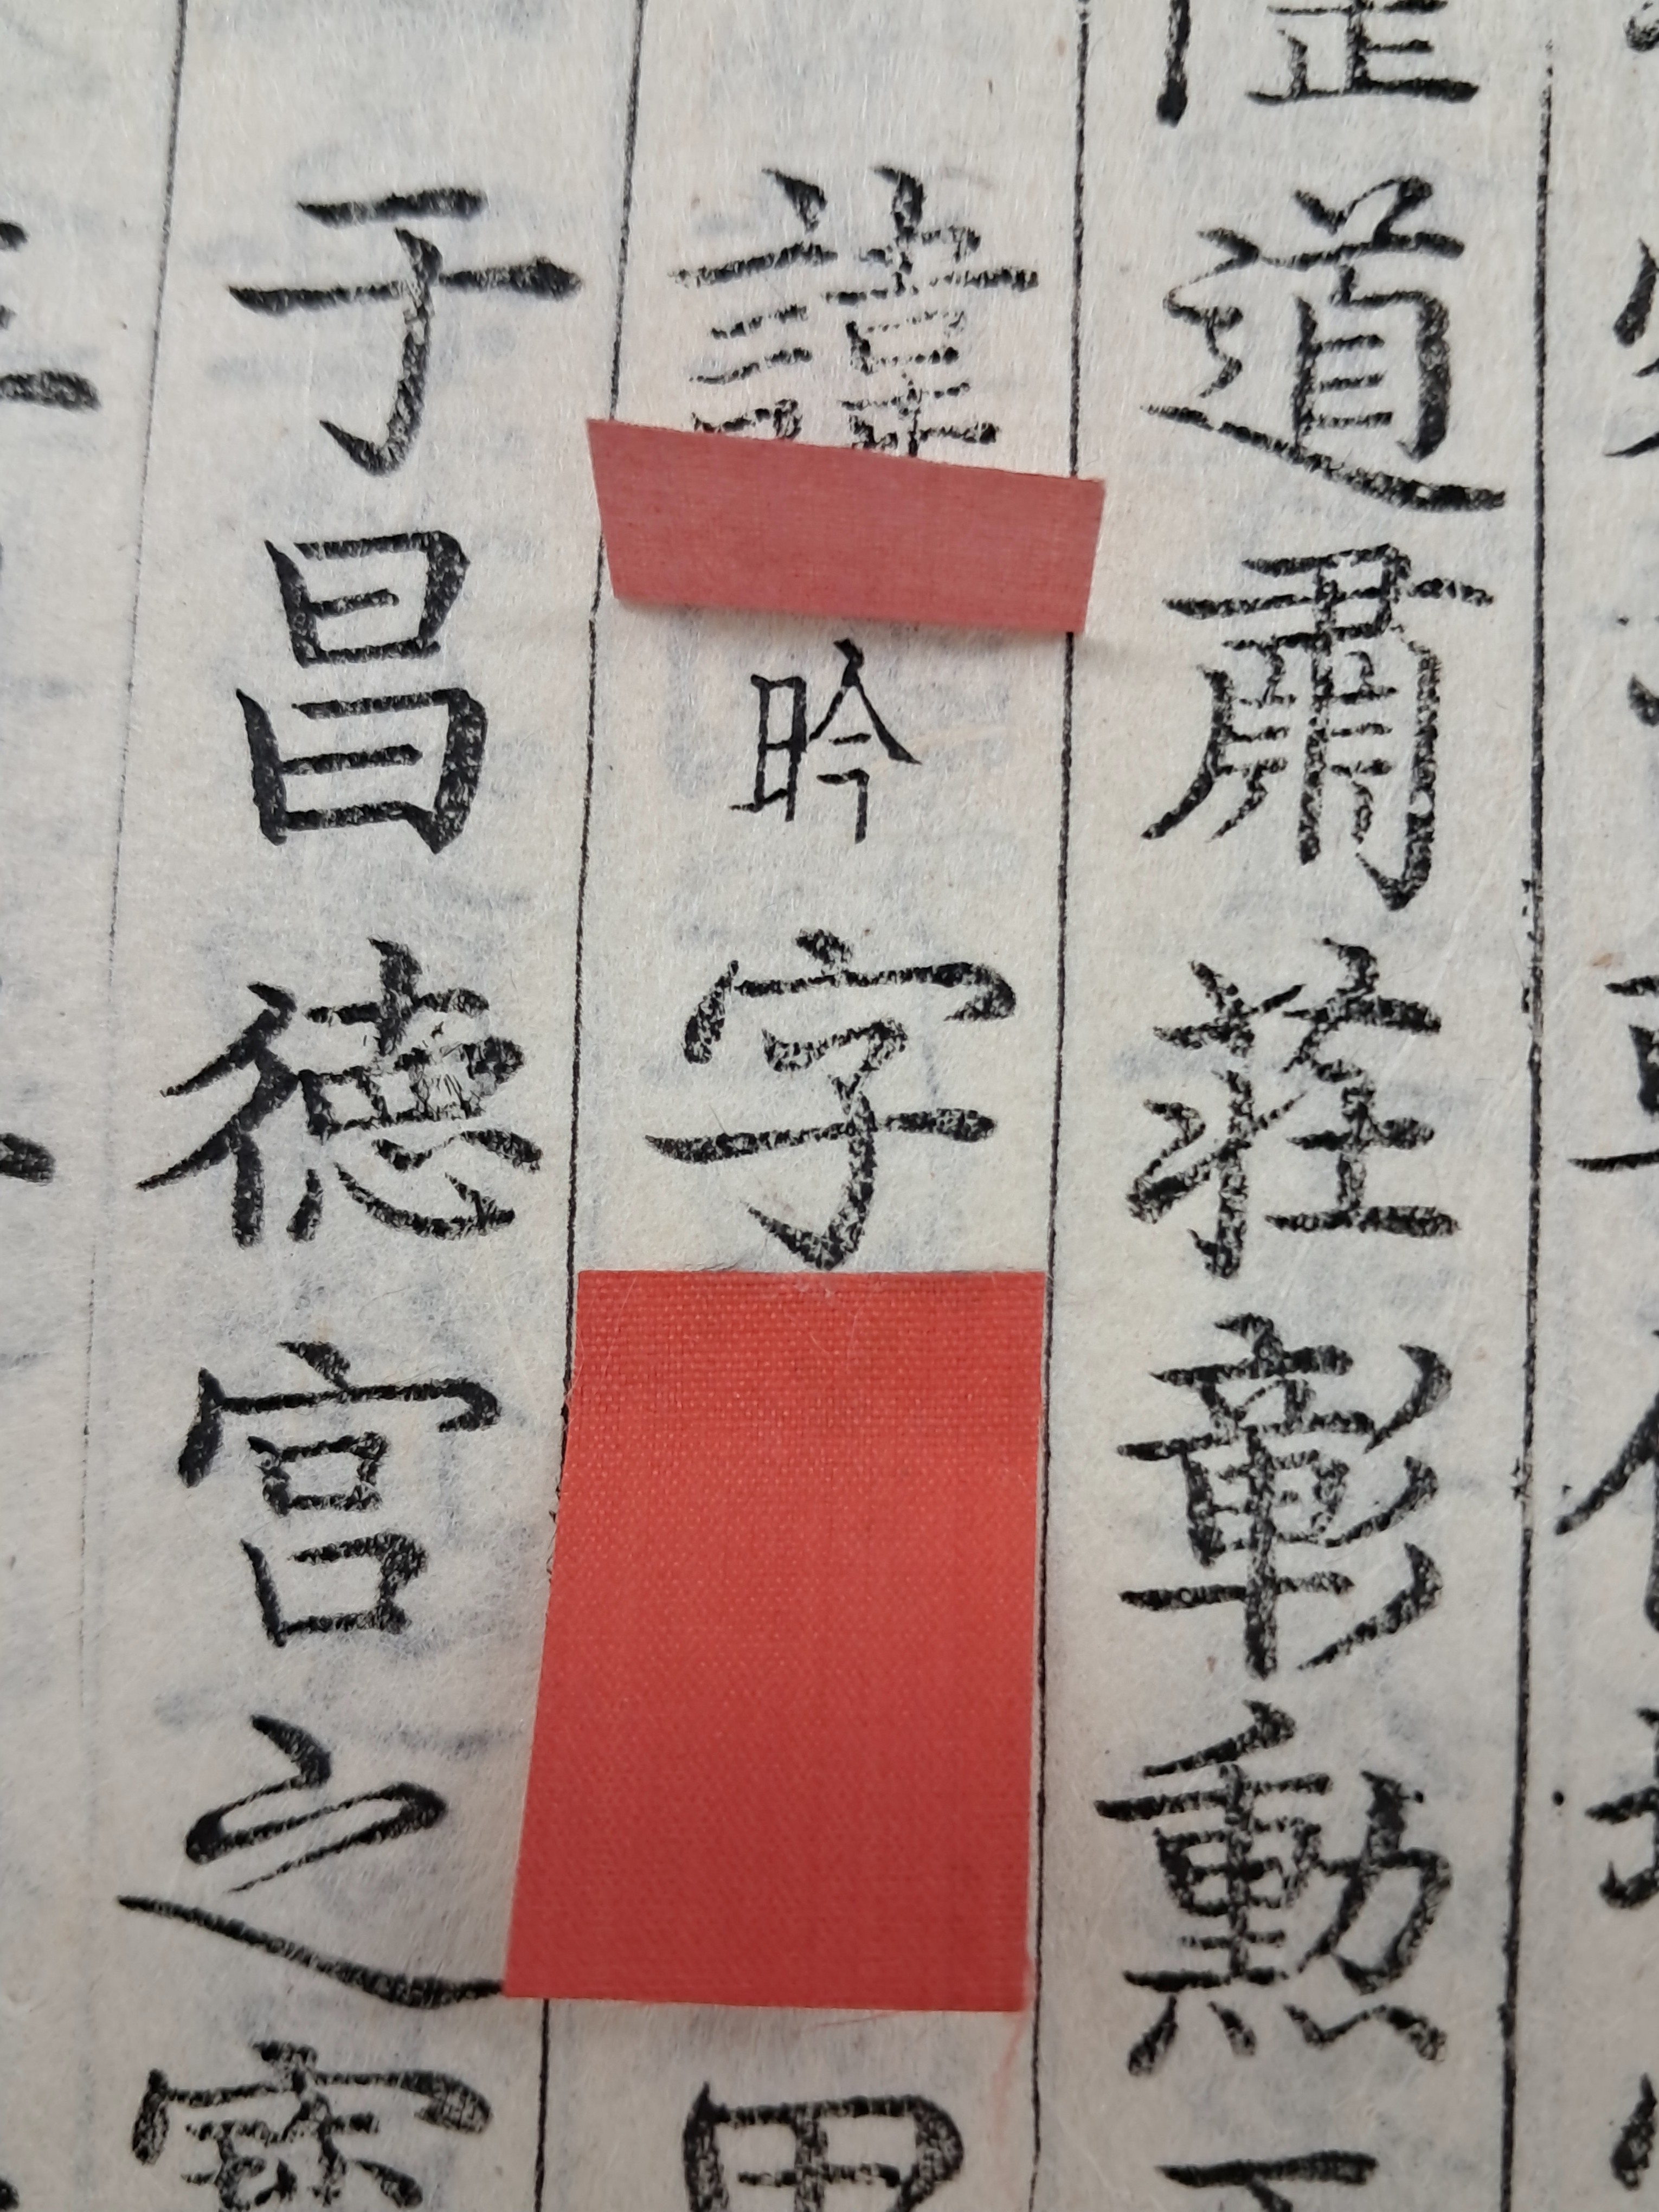 道肅莊彰勳
諱昑字
于昌德宮之